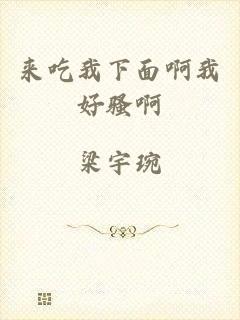 来吃我下面啊我
好骚啊
梁宇琬